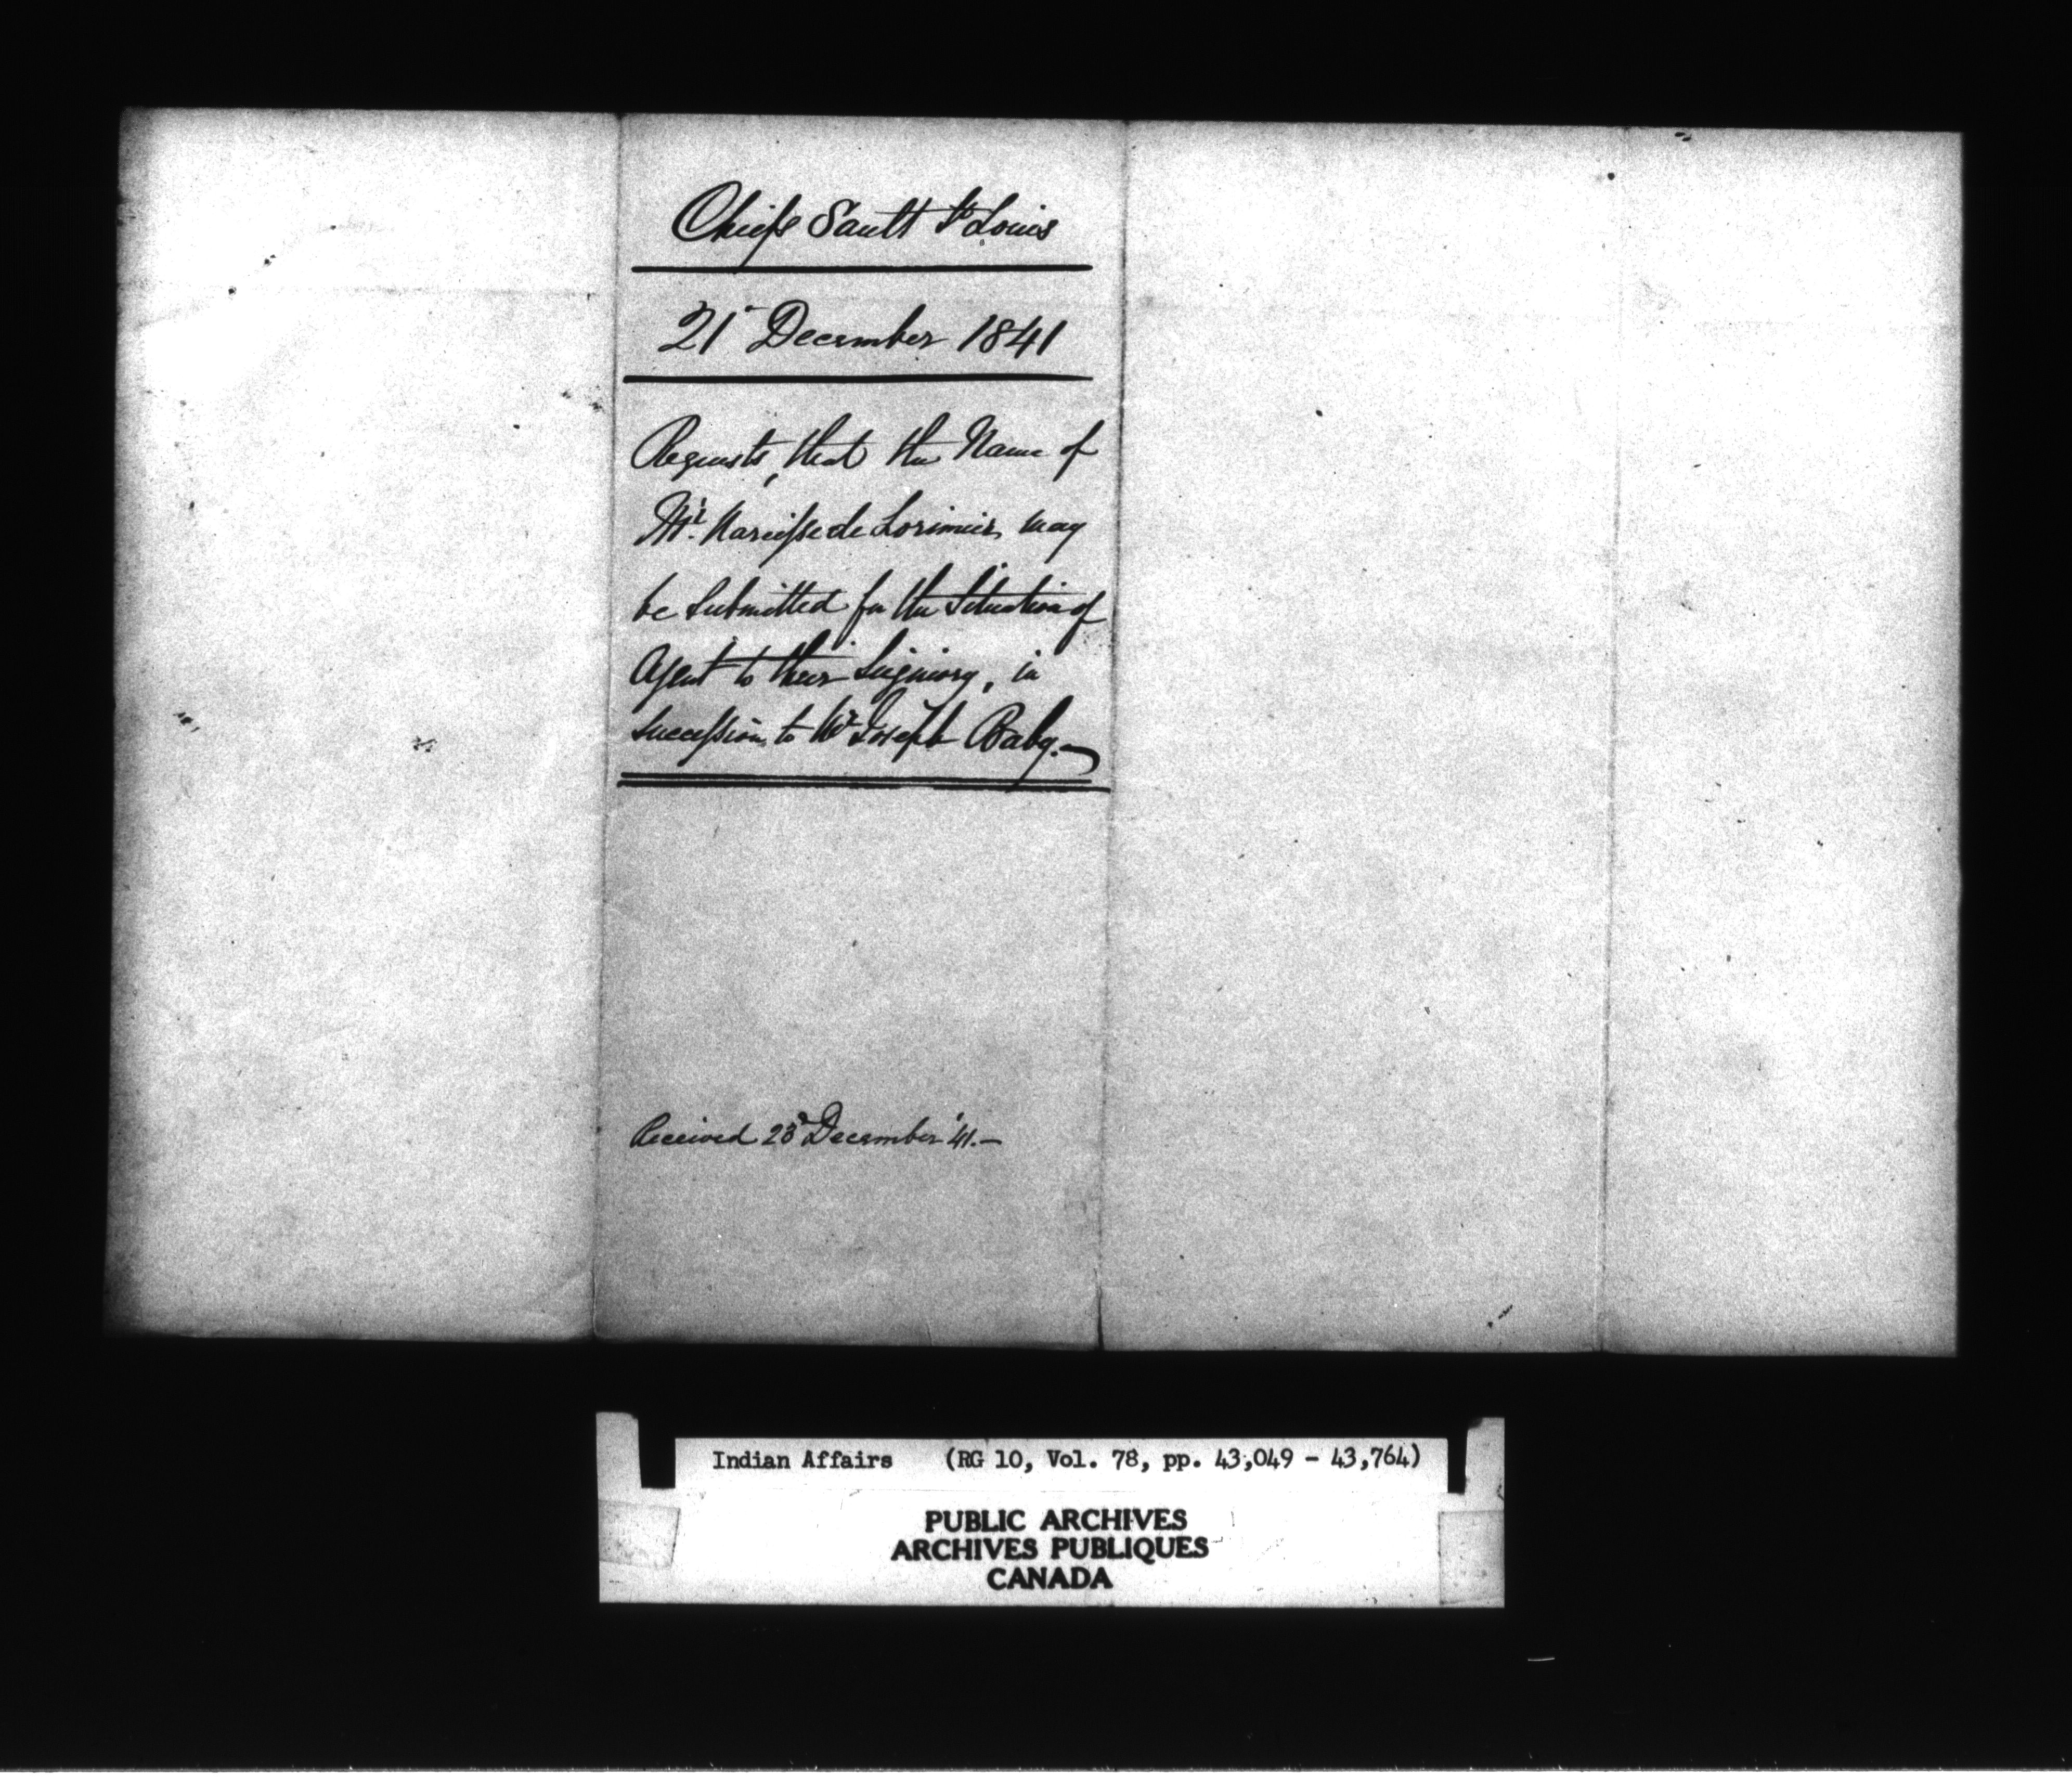 Chiefs Sault St Louis
21st December 1841
Requests, that the Name of
Mr. Narcisse de Lorimier may
be Submitted for the Situation of
Agent to their Seigniory, in
succession to Mr Joseph Baby.—
Received 23d December '41.—
Indian Affairs (RG 10, Vol. 78, pp. 43,049 - 43,764)
PUBLIC ARCHIVES
ARCHIVES PUBLIQUES
CANADA